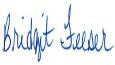 Bridgit Feeser